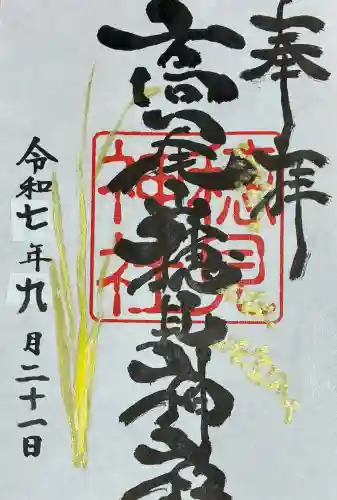 奉拝
高尾山穂見神社
穂見神社
令和七年九月二十一日